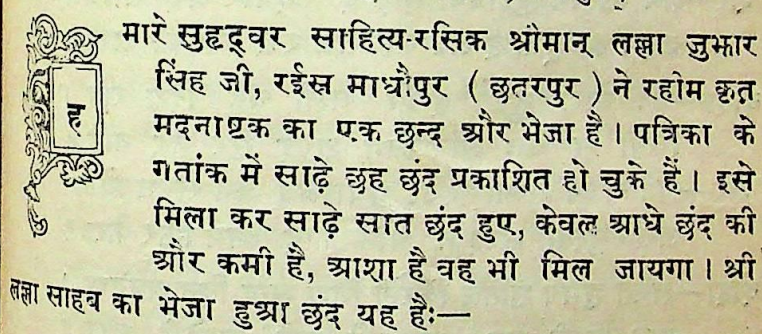 हमारे सुहृद्वर साहित्य-रसिक श्रीमान् लल्ला जुझार
सिंह जी, रईस माधौपुर ( छतरपुर ) ने रहीम कृत
मदनाष्टक का एक छन्द और भेजा है । पत्रिका के
गतांक में साढ़े छह छंद प्रकाशित हो चुके हैं । इसे
मिला कर साढ़े सात छंद हुए, केवल आधे छंद की
और कमी है, आशा है वह भी मिल जायगा । श्री
लल्ला साहब का भेजा हुआ छंद यह है:—